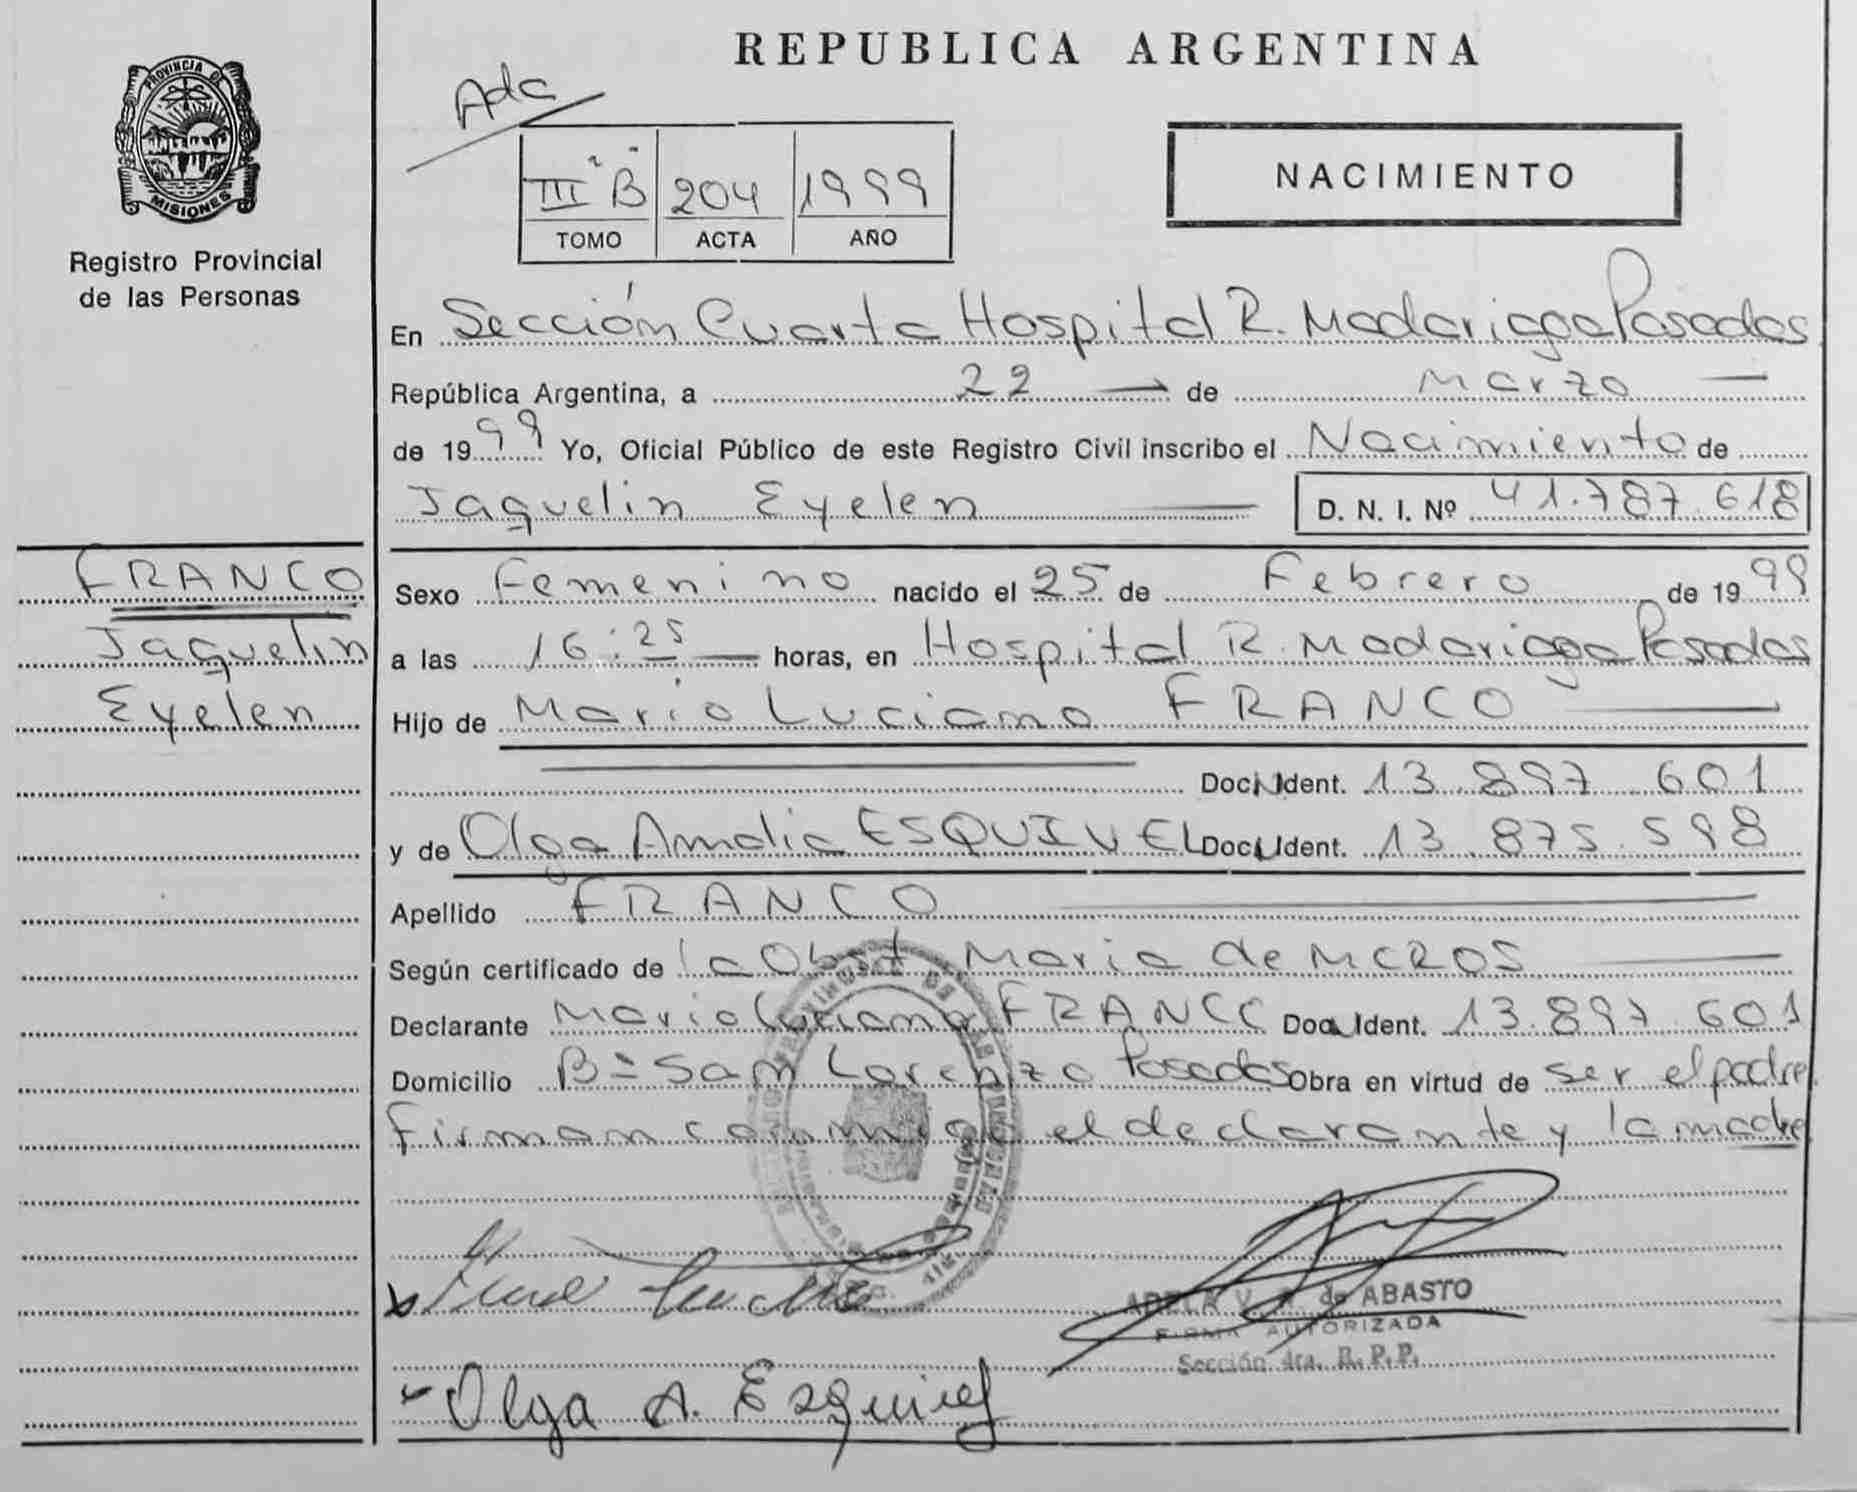 REPUBLICA ARGENTINA
PROVINCIA DE
MISIONES
Registro Provincial
de las Personas
Adc
III "B" 204 1999
TOMO ACTA AÑO
NACIMIENTO
En Sección Cuarta Hospital R. Madariaga Posadas
República Argentina, a 22 de Marzo
de 1999 Yo, Oficial Público de este Registro Civil inscribo el Nacimiento de
Jaquelin Eyelen D. N. I. Nº 41.787.618
FRANCO
Jaquelin
Eyelen
Sexo Femenino nacido el 25 de Febrero de 1999
a las 16:25 horas, en Hospital R. Madariaga Posadas
Hijo de Mario Luciano FRANCO
Doc. Ident. 13.897.601
y de Olga Amalia ESQUIVEL Doc. Ident. 13.875.598
Apellido FRANCO
Según certificado de la Obst. Maria de MEROS
Declarante Mario Luciano FRANCO Doc. Ident. 13.897.601
Domicilio Bº San Lorenzo Posadas Obra en virtud de ser el padre
Firman conmigo el declarante y la madre
ADELA V. de ABASTO
FIRMA AUTORIZADA
Sección 4ta. R. P. P.
Olga A. Esquivel